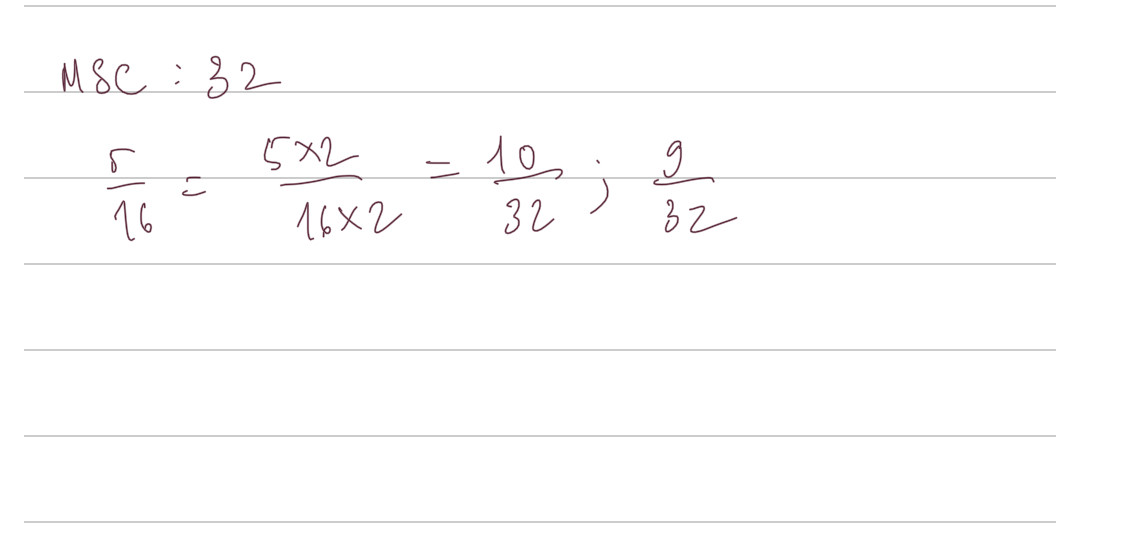 MSC : 32
5/16 = 5×2/16×2 = 10/32 ; 9/32